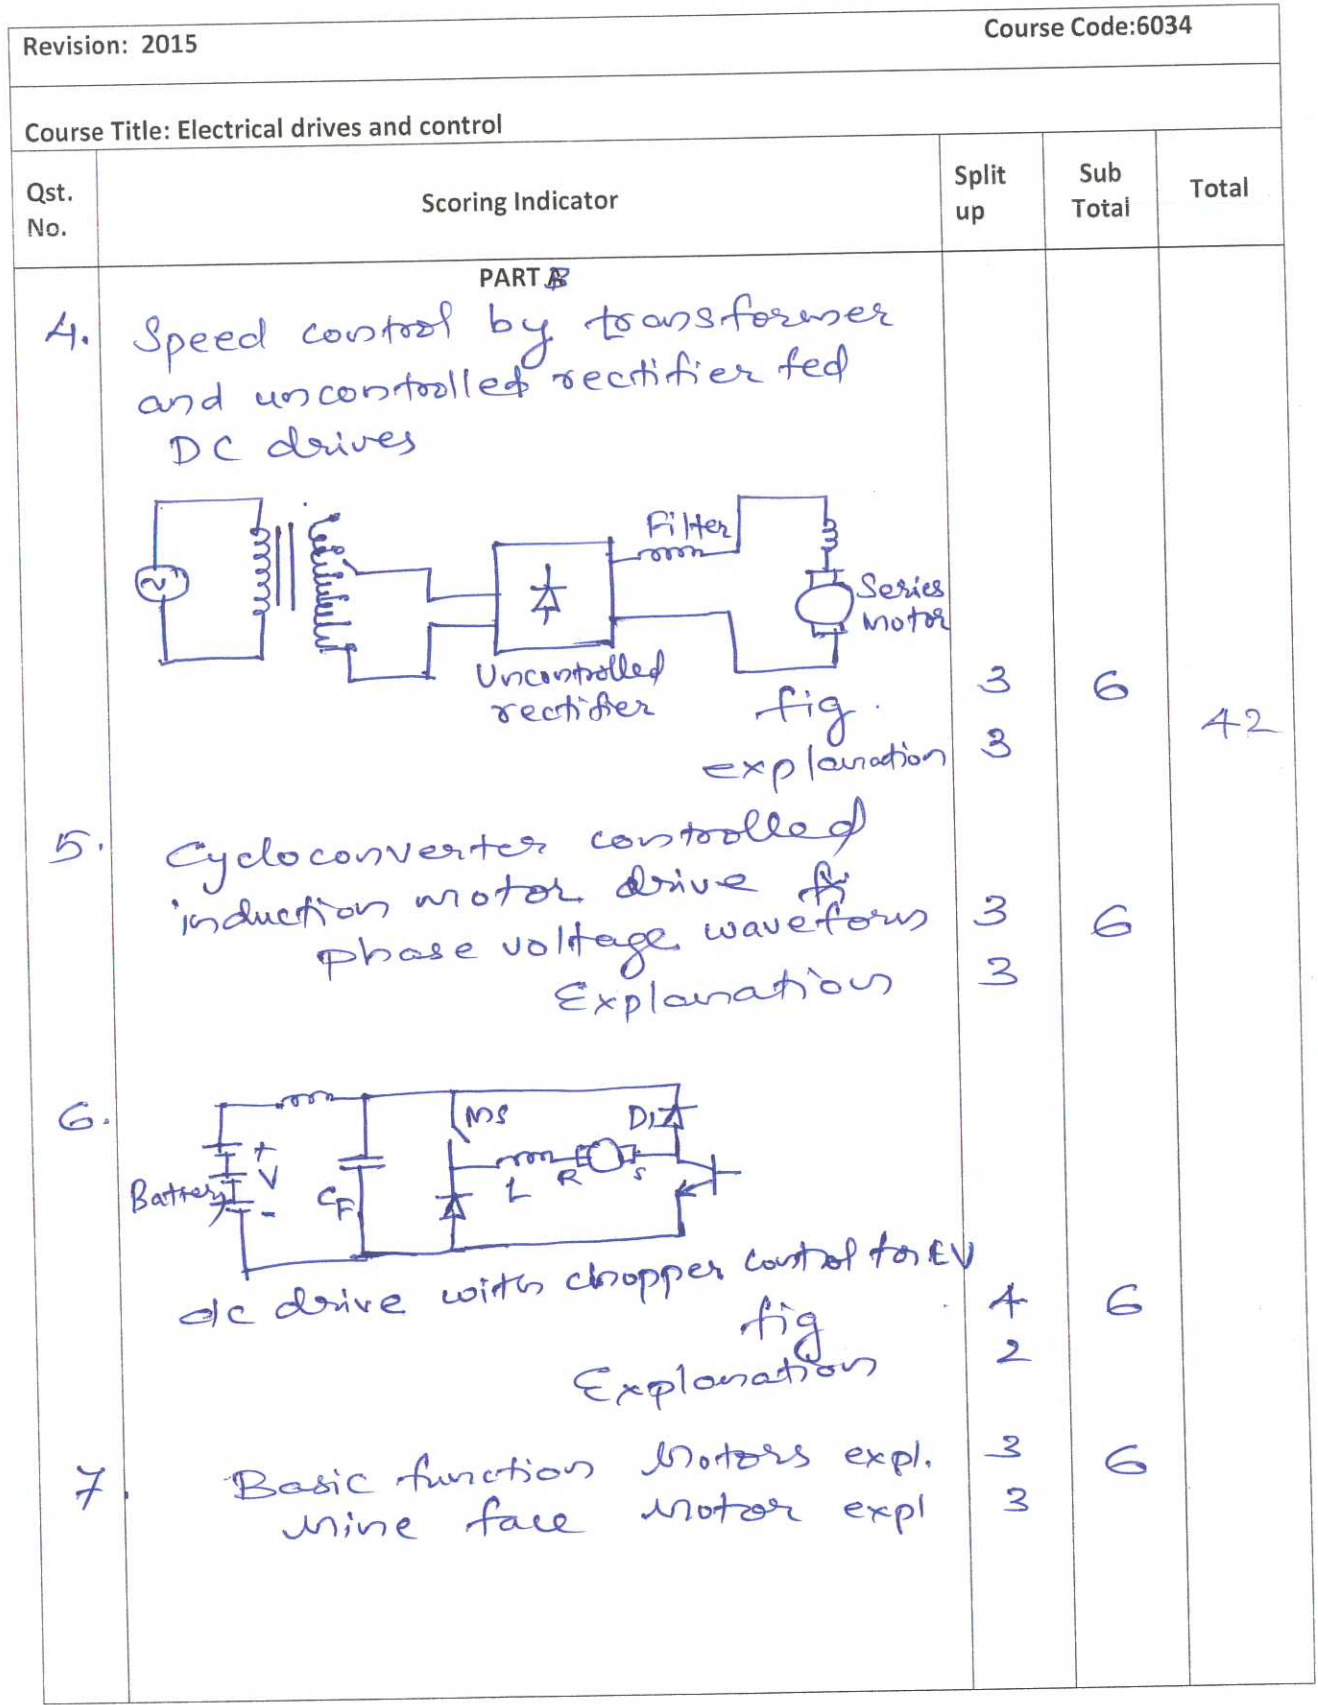 Revision: 2015
Course Code:6034
Course Title: Electrical drives and control
Qst. No.
Scoring Indicator
Split up
Sub Total
Total
PART B
4. Speed control by transformer
and uncontrolled rectifier fed
DC drives
Filter
Series
Motor
Uncontrolled
rectifier
fig. 3 6
42
explanation 3
5. Cycloconverter controlled
induction motor drive
phase voltage waveform 3 6
Explanation 3
6.
MS
D1
Battery
+
V
-
CF
L
R
S
dc drive with chopper control for EV
fig 4 6
Explanation 2
7. Basic function Motors expl. 3 6
Mine face Motor expl 3